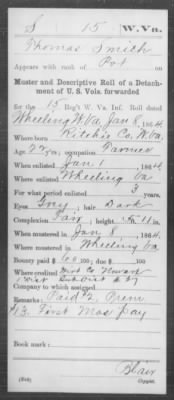 S 15 W. Va.
Thomas Smith
Appears with rank of Pvt on
Muster and Descriptive Roll of a Detach-
ment of U. S. Vols. forwarded
for the 15 Reg't W. Va. Inf. Roll dated
Wheeling W. Va Jan 8, 1864.
Where born Ritchie Co. W. Va.
Age 22 y'rs; occupation Farmer
When enlisted Jan 1, 1864.
Where enlisted Wheeling Va
For what period enlisted 3 years.
Eyes Grey; hair Dark
Complexion Fair; height 5 ft. 11 in.
When mustered in Jan 8, 1864.
Where mustered in Wheeling Va
Bounty paid $ 60 100; due $ 100
Where credited Wirt Co
1 Dist
Company to which assigned
Remarks: Paid $2. Prem
$13. First Mos Pay
Book mark:
Blair
Copyist.